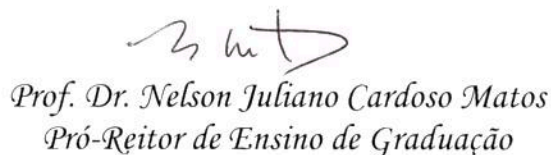 Prof. Dr. Nelson Juliano Cardoso Matos
Pró-Reitor de Ensino de Graduação